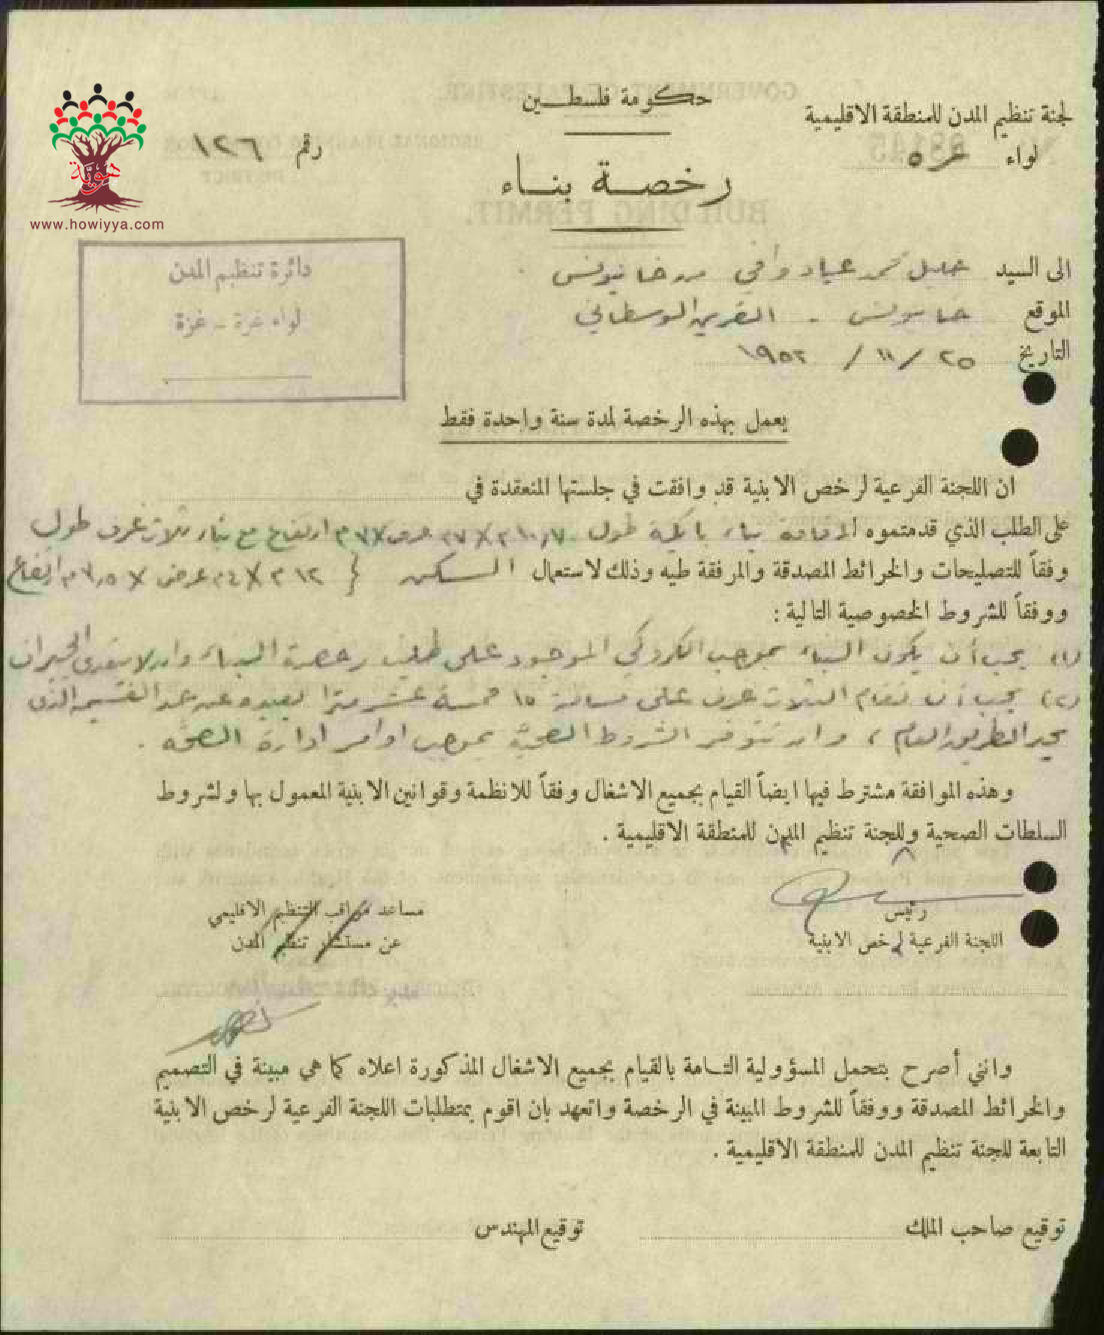 حكومة فلسطين
لجنة تنظيم المدن للمنطقة الاقليمية
لواء غزه
رقم ١٢٦
رخصة بناء
هوية
www.howiyya.com
دائرة تنظيم المدن
لواء غزة - غزة
الى السيد خليل محمد عياد وافي من خانيونس
الموقع خانيونس - القرين الوسطاني
التاريخ ٢٥ / ١١ / ١٩٥٢
يعمل بهذه الرخصة لمدة سنة واحدة فقط
ان اللجنة الفرعية لرخص الابنية قد وافقت في جلستها المنعقدة في
على الطلب الذي قدمتموه لاقامة بناء بايكة طول عرض ارتفاع مع بناء ثلاث غرف طول
وفقاً للتصليحات والخرائط المصدقة والمرفقة طيه وذلك لاستعمال السكن ١٢م × ٤م عرض × ارتفاع
ووفقاً للشروط الخصوصية التالية :
(١) يجب أن يكون البناء بموجب الكروكي الموجود على طلب رخصة البناء وان لا يتعدى الجيران
(٢) يجب أن تقام الثلاث غرف على مسافة ١٥ خمسة عشر مترا بعيده عن حد القسيمه الذي
يحد الطريق العام ، وان تتوفر الشروط الصحية بموجب اوامر ادارة الصحه .
وهذه الموافقة مشترط فيها ايضاً القيام بجميع الاشغال وفقاً للانظمة وقوانين الابنية المعمول بها ولشروط
السلطات الصحية وللجنة تنظيم المدن للمنطقة الاقليمية .
رئيس
اللجنة الفرعية لرخص الابنية
مساعد مراقب التنظيم الاقليمي
عن مستشار تنظيم المدن
وانني أصرح بتحمل المسؤولية التامة بالقيام بجميع الاشغال المذكورة اعلاه كما هي مبينة في التصميم
والخرائط المصدقة ووفقاً للشروط المبينة في الرخصة واتعهد بان اقوم بمتطلبات اللجنة الفرعية لرخص الابنية
التابعة للجنة تنظيم المدن للمنطقة الاقليمية .
توقيع صاحب الملك
توقيع المهندس